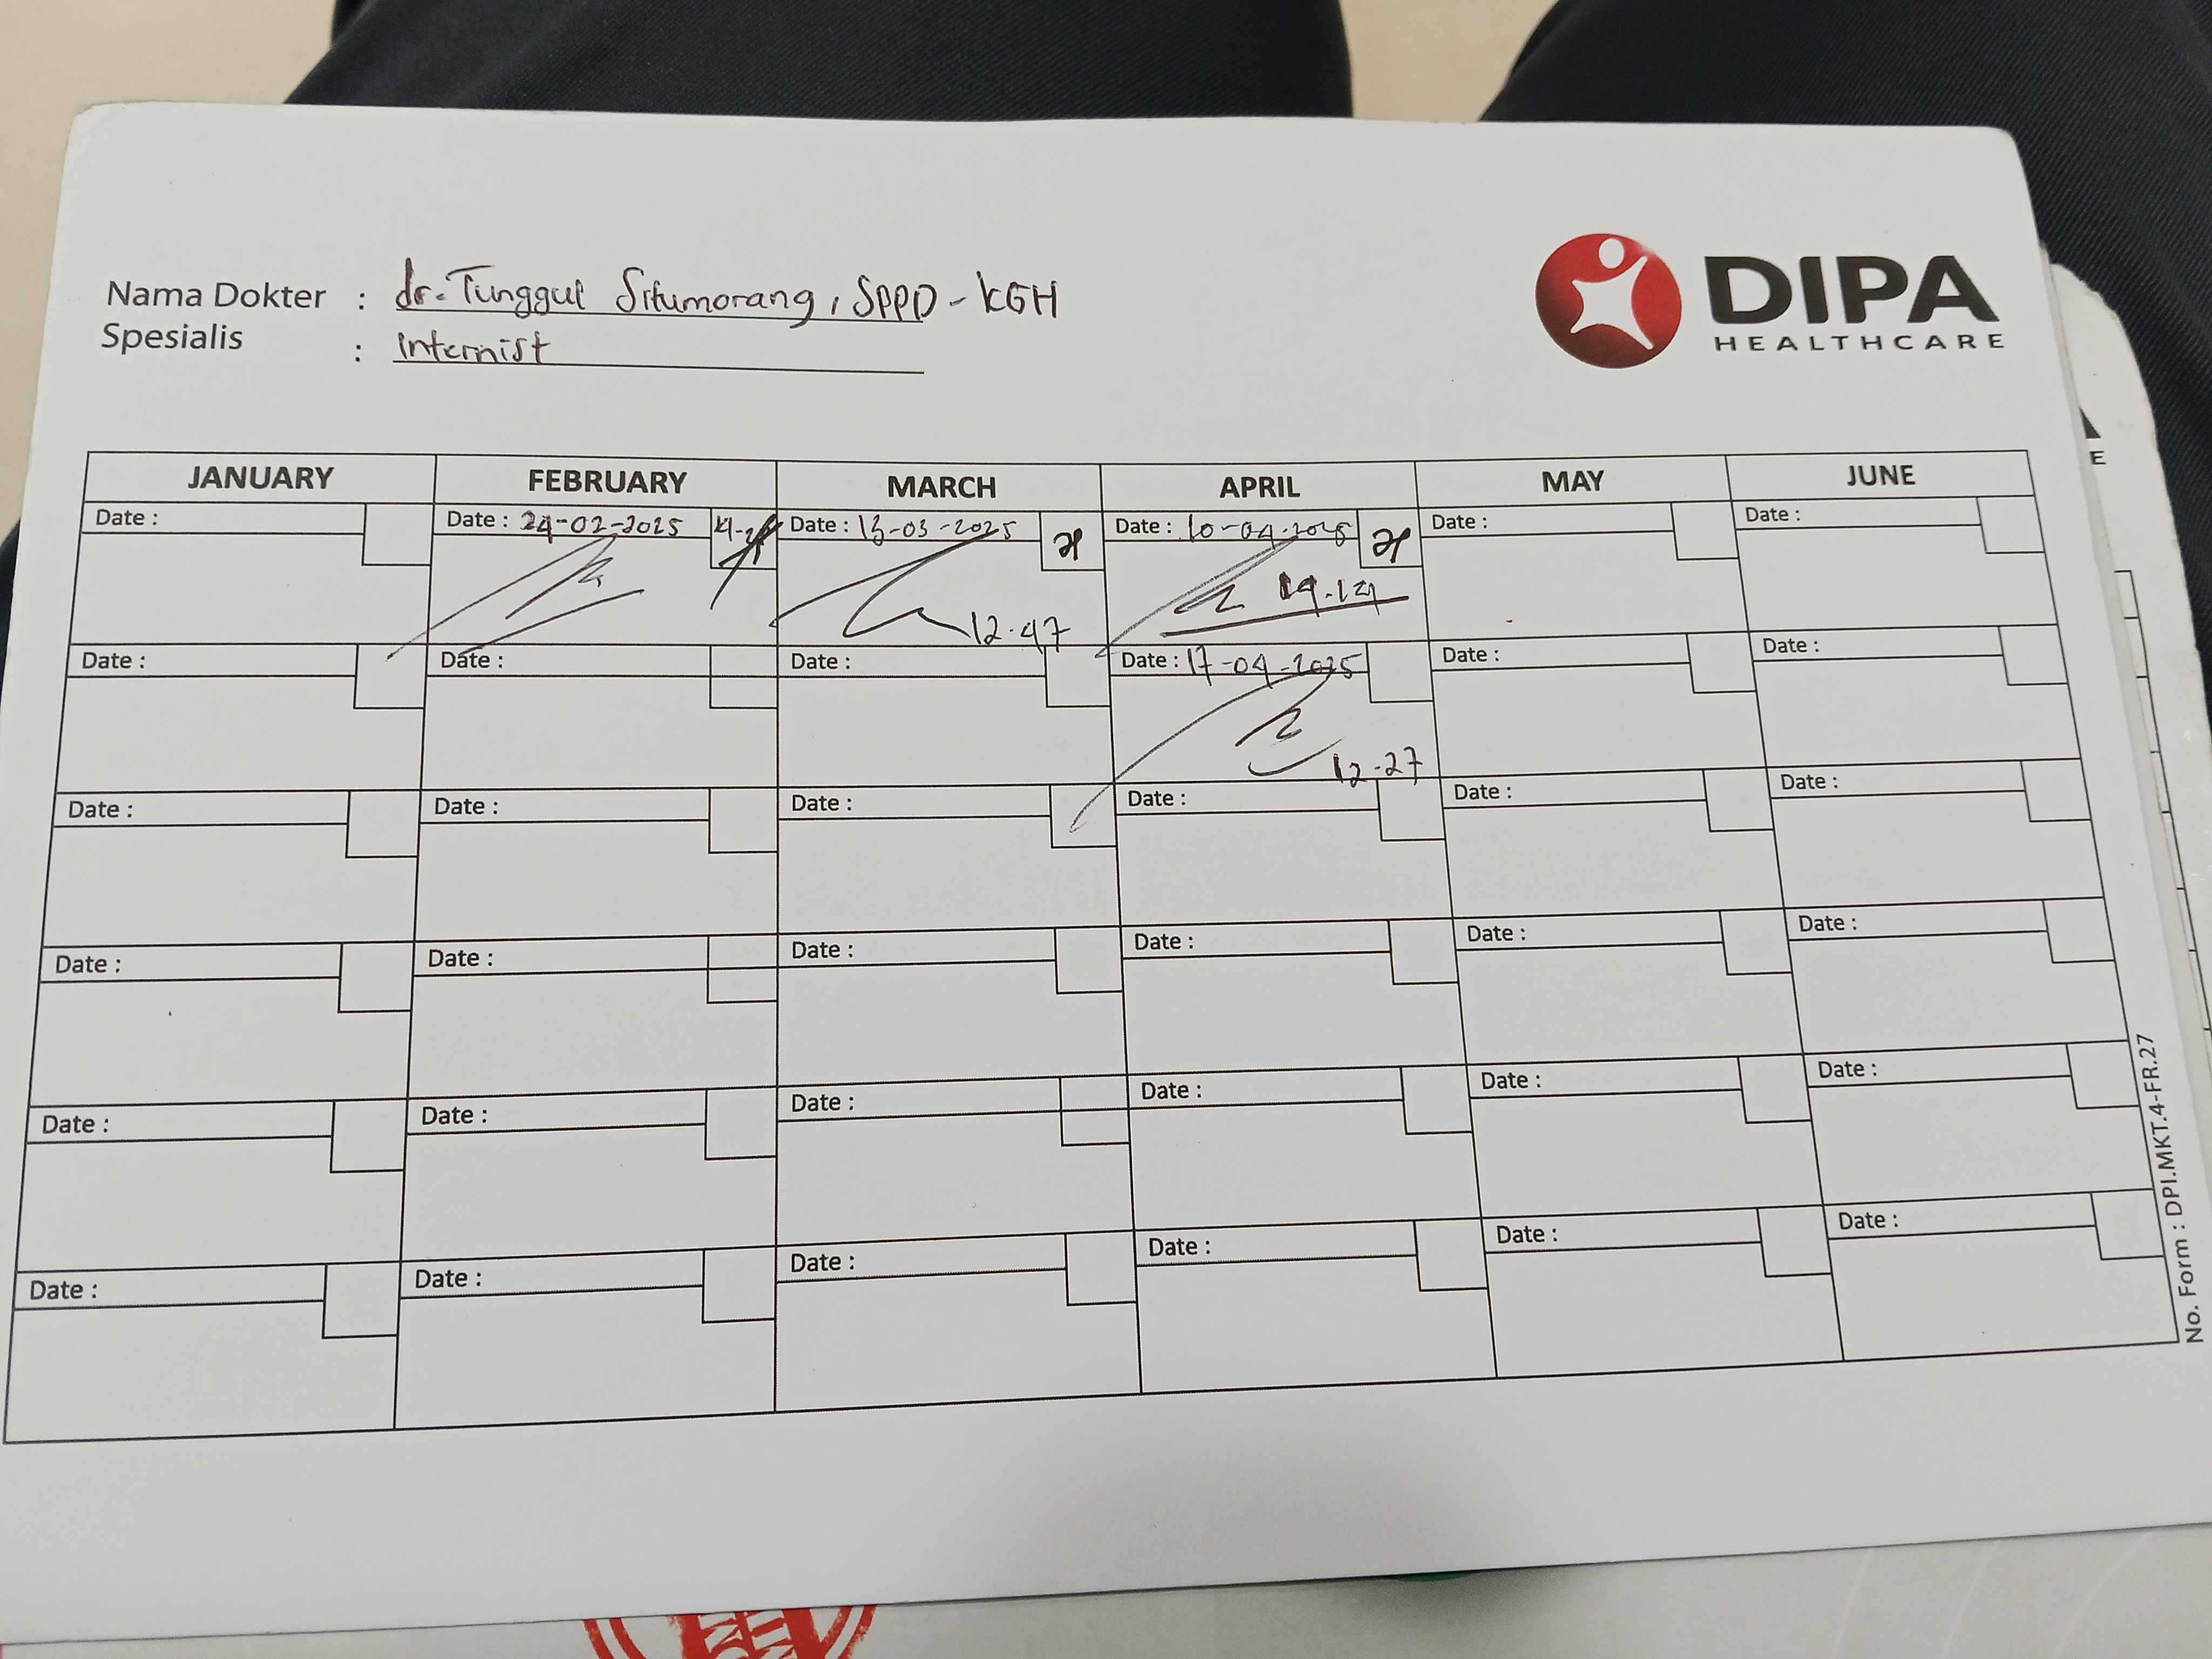 Nama Dokter : dr. Tunggul Situmorang, SPPD - KGH
Spesialis : Internist
DIPA
HEALTHCARE
JANUARY FEBRUARY MARCH APRIL MAY JUNE
Date : Date : 24-02-2025 Date : 13-03-2025 Date : 10-04-2025 Date : Date :
12.47 14.14
Date : Date : Date : Date : 17-04-2025 Date : Date :
12.27
Date : Date : Date : Date : Date : Date :
Date : Date : Date : Date : Date : Date :
Date : Date : Date : Date : Date : Date :
Date : Date : Date : Date : Date : Date :
No. Form : DPI.MKT.4-FR.27
E